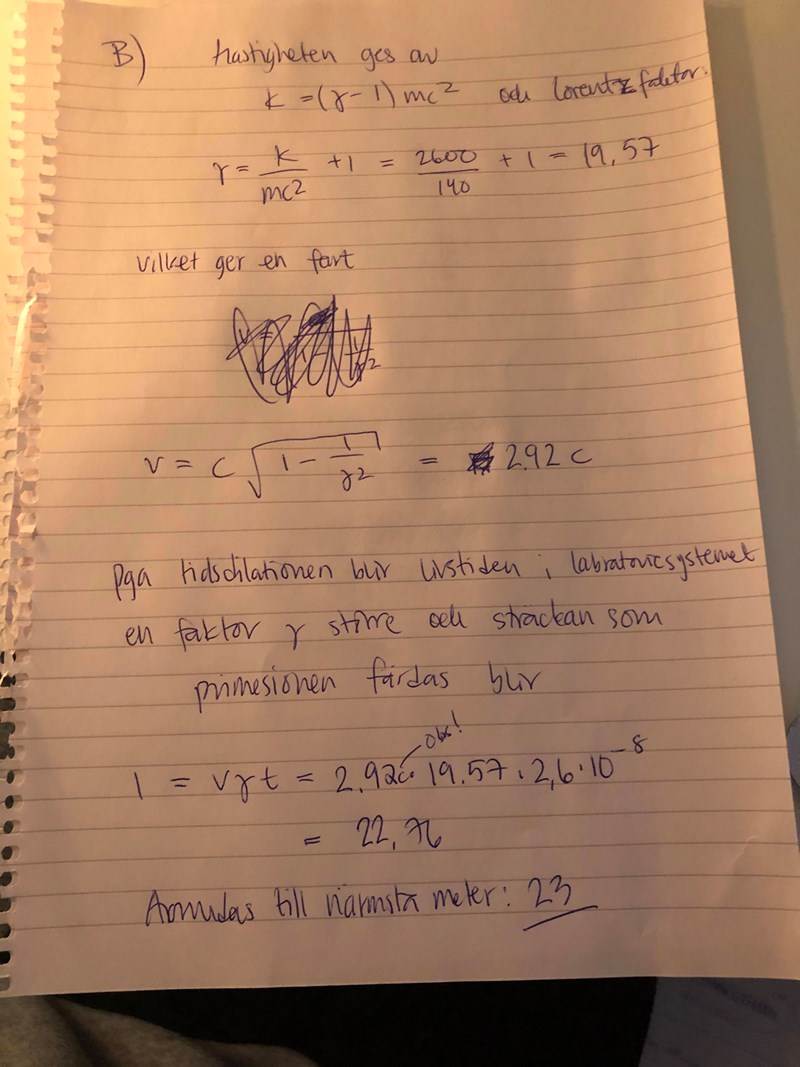 B) hastigheten ges av
K = (γ-1) mc² och Lorentzfaktor:
γ = K/mc² + 1 = 2600/140 + 1 = 19,57
vilket ger en fart
v = c √(1 - 1/γ²) = 2.92 c
Pga tidsdilationen blir livstiden i labratoriesystemet
en faktor γ större och sträckan som
pimesionen färdas blir
Obs!
l = vγt = 2.92c · 19.57 · 2,6 · 10⁻⁸
= 22,76
Avrundas till närmsta meter: 23